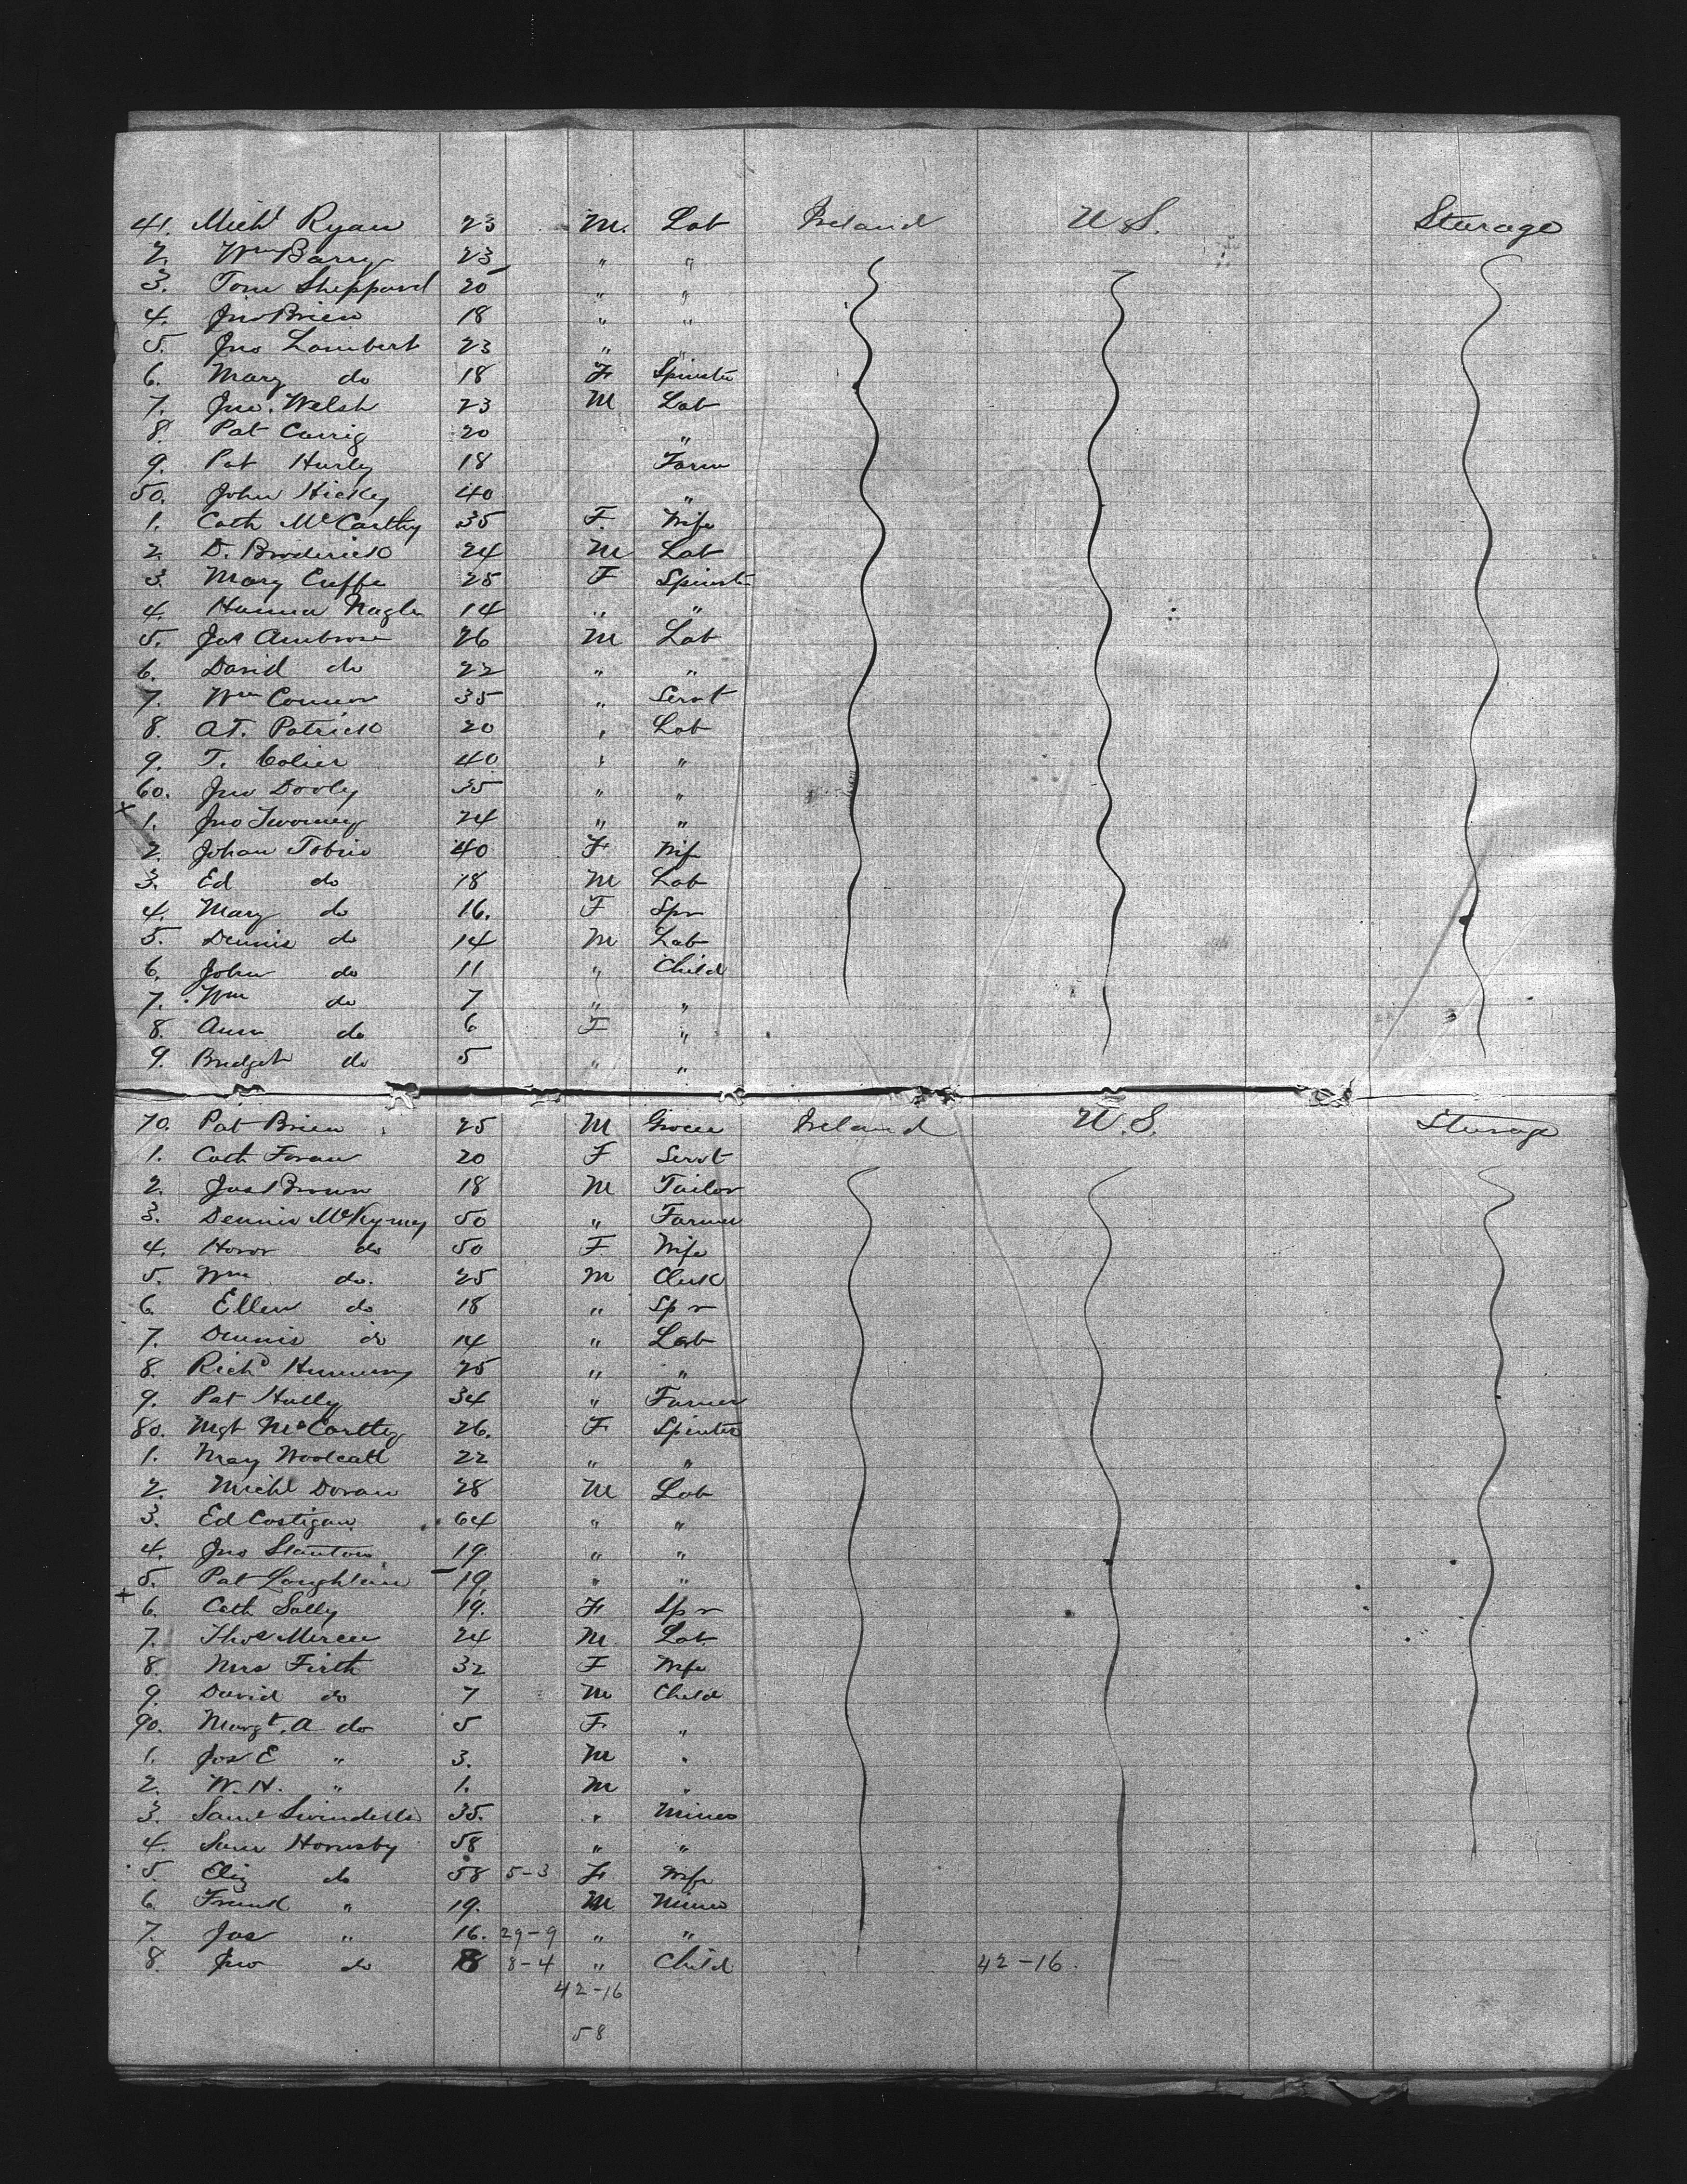 41. Michl Ryan 23 M. Lab Ireland U.S. Sturage
2. Wm Barry 23 " "
3. Tom Sheppard 20 " "
4. Jno Brien 18 " "
5. Jno Lambert 23 " "
6. Mary do 18 F Spinstr
7. Jno. Welsh 23 M Lab
8. Pat Carrig 20 "
9. Pat Hurly 18 Farm
50. John Hickey 40 "
1. Cath McCarthy 35 F. Wife
2. D. Broderick 24 M Lab
3. Mary Cuffe 25 F Spinstr
4. Hanna Nagle 14 " "
5. Jas Ambrose 26 M Lab
6. David do 22 " "
7. Wm Connor 35 " Servt
8. At. Patrick 20 " Lab
9. T. Colier 40 " "
60. Jno Dooly 35 " "
x
1. Jno Twomey 24 " "
2. Johan Tobin 40 F Wife
3. Ed do 18 M Lab
4. Mary do 16. F Spr
5. Dennis do 14 M Lab
6. John do 11 " Child
7. Wm do 7 " "
8. Ann do 6 F "
9. Bridget do 5 " "
70. Pat Brien 25 M Grocer Ireland U.S. Sturage
1. Cath Foran 20 F Servt
2. Jas Brown 18 M Tailor
3. Dennis 50 " Farmer
4. Honor do 50 F Wife
5. Wm do. 25 M Clerk
6. Ellen do 18 " Spr
7. Dennis do 14 " Lab
8. Richd 25 " "
9. Pat Hally 34 " Farmer
80. Mgt McCarthy 26. F Spinter
1. May Woolcatt 22 " "
2. Michl Doran 28 M Lab
3. Ed Costigan 64 " "
4. Jno Stanton 19. " "
5. Pat Loughlan 19. " "
+
6. Cath Sally 19. F Spr
7. Thos Mercer 24 M. Lab
8. Mrs Firth 32 F Wife
9. David do 7 M Child
90. Margt. A do 5 F "
1. Jos E " 3. M "
2. W. H. " 1. M "
3. Saml Swindells 35. " Miner
4. Sam Hornsby 58 " "
5. Eliz do 58 5-3 F Wife
6. Frank " 19. M Miner
7. Jas " 16. 29-9 " "
8. Jno do 8 8-4 " Child 42-16.
42-16
58